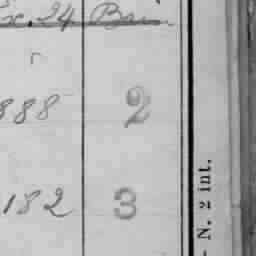 24 Bu
888 2
182 3
- N. 2 int.